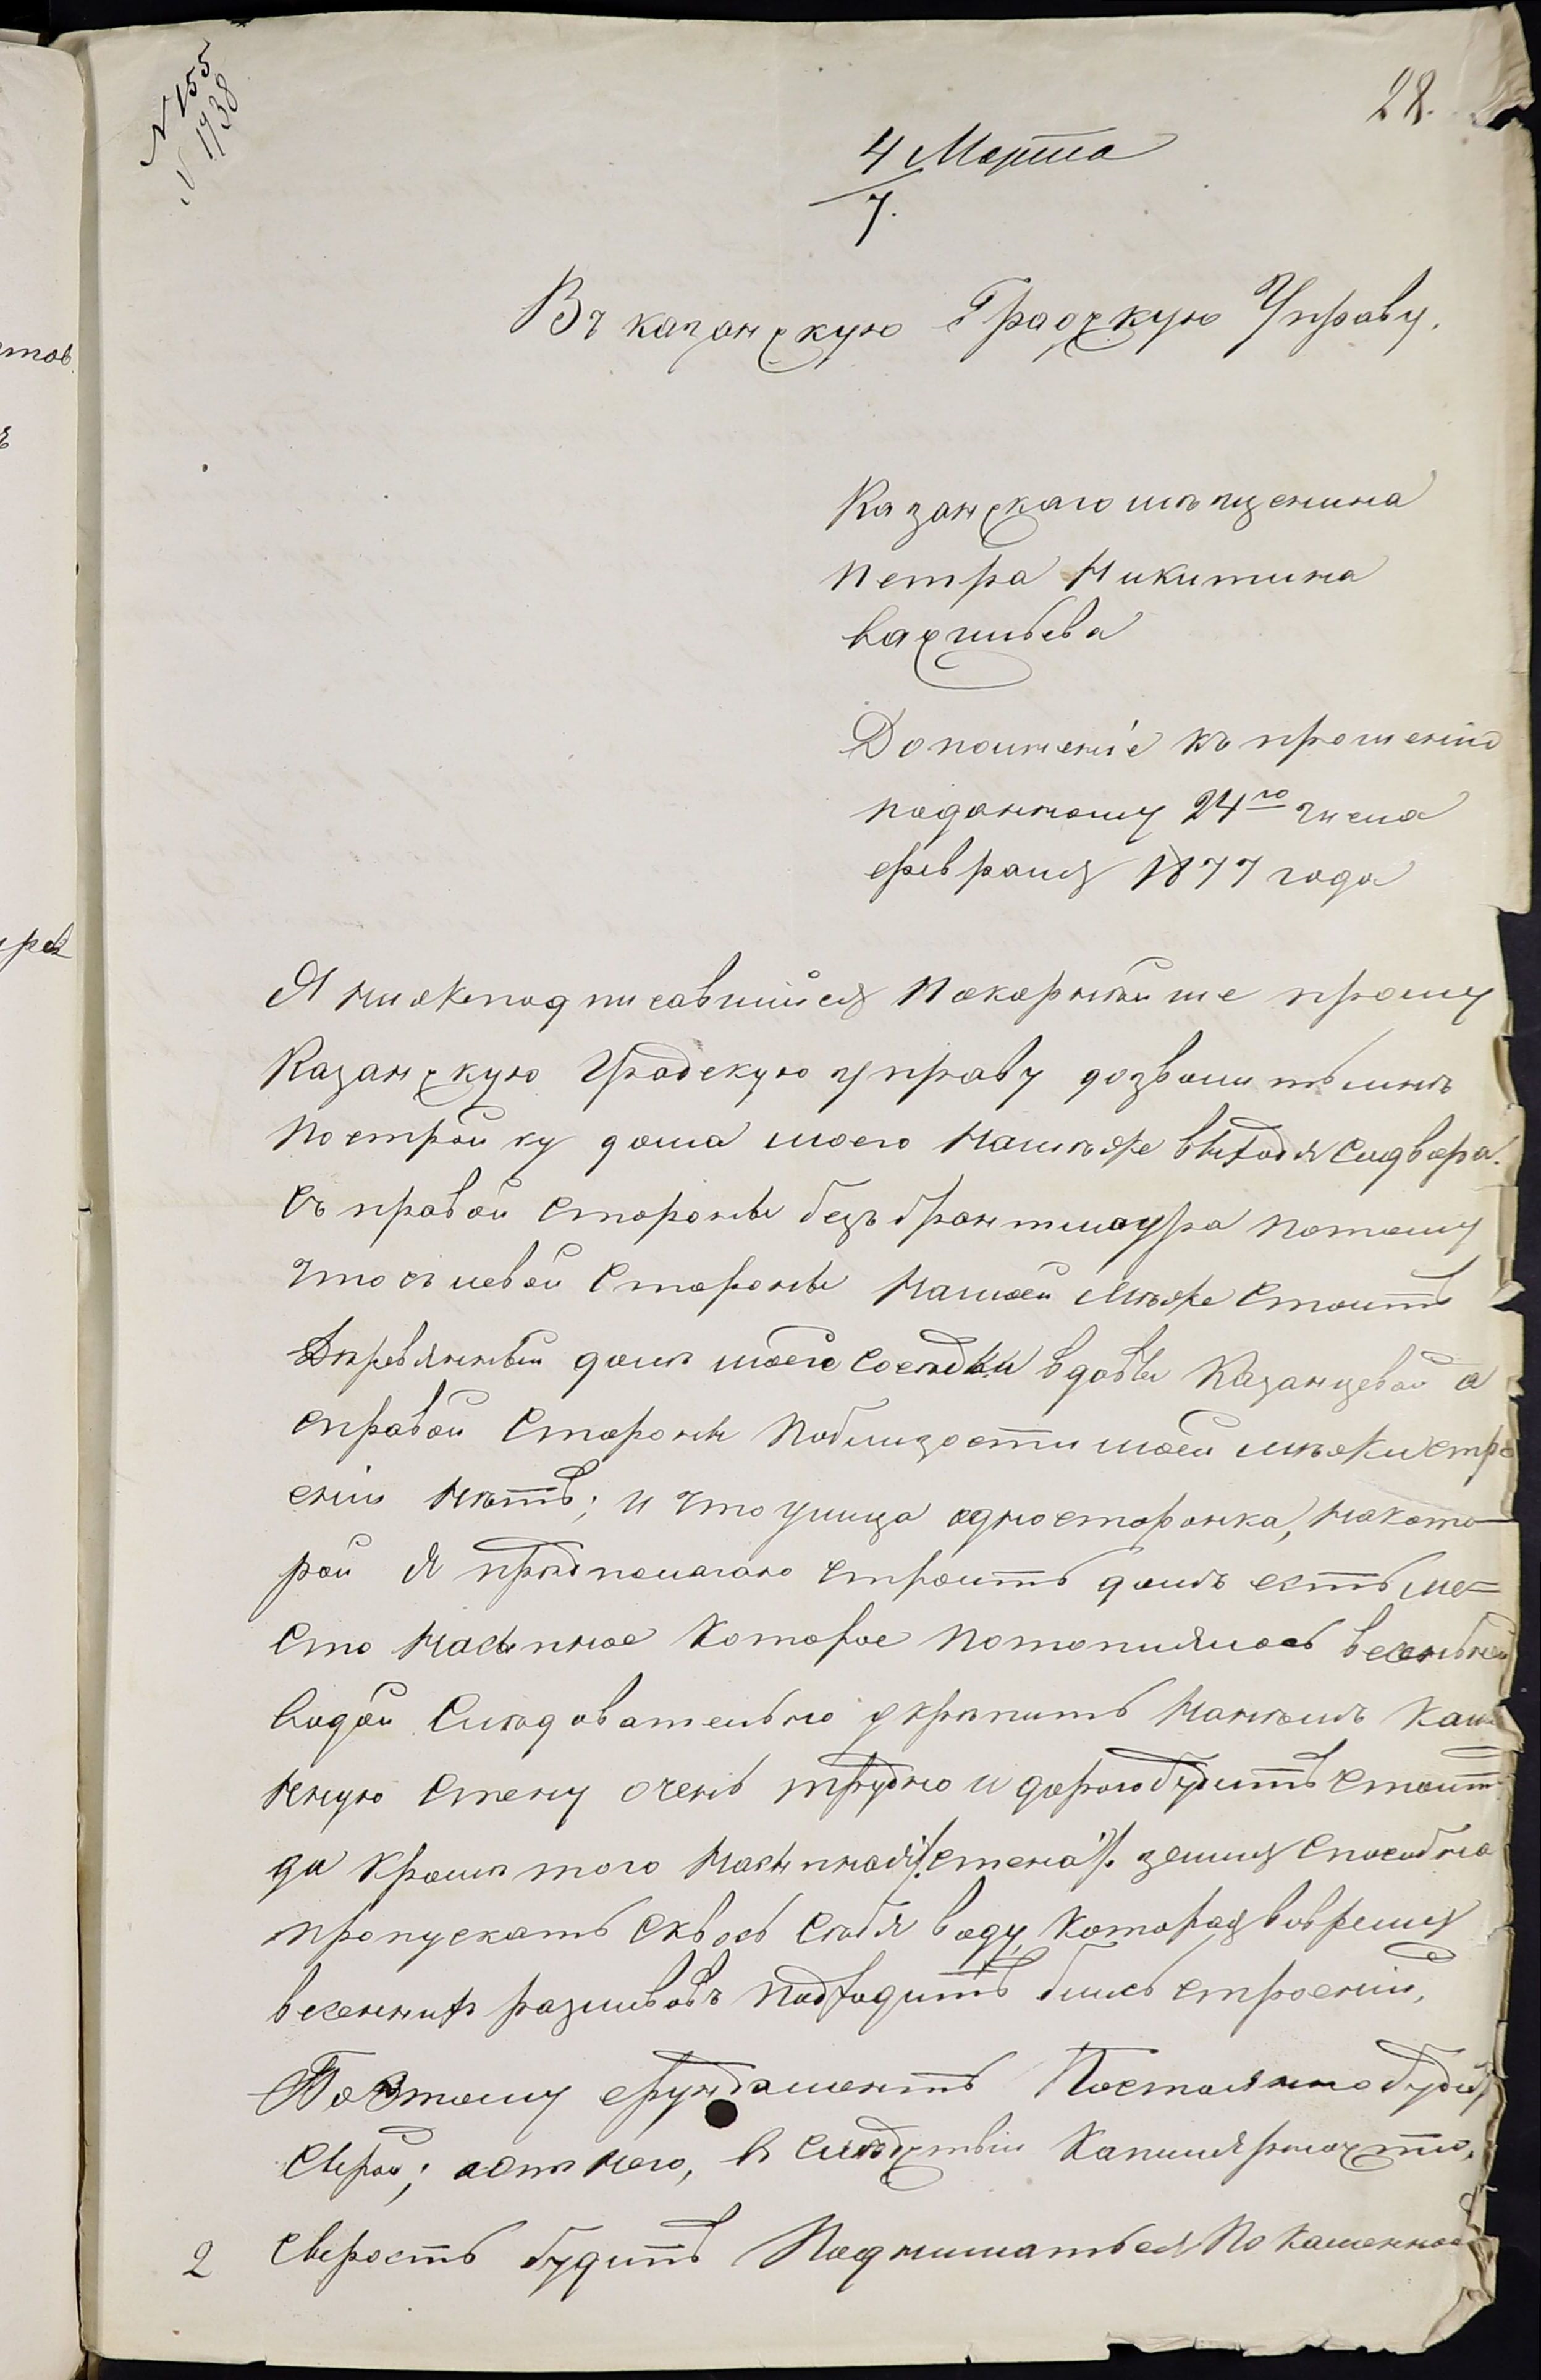 N 155
N 1738
28.
4 Марта
7.
Въ казанскую Градскую Управу.
Казанскаго мѣщенина
Петра Никитина
Васильева
Дополненіе къ прошенію
поданному 24го числа
февраля 1877 года
Я нижеподписавшійся Покорнѣйше прошу
Казанскую Градскую управу дозволить мнѣ
Постройку дома моего Намѣже выходя Сыдвора.
Съ правой Стороны безъ брантмаура потому
что съ левой Стороны Намоей Мѣже Стоитъ
Дѣревянный домъ моего Соседки вдовы Казанцевой а
справой Стороны Поблизости моей мѣжи стро
еній нѣтъ; и что улица односторонка, накото-
рой Я прѣдполагаю Строить домъ есть ме=
Сто Насыпное Которое Потоплялось весеньней
Водой Слѣдовательно укрѣпить Нанѣмъ Каме
нную Стену очень трудно и дорого будитъ Стоить
да Кромѣ того Насыпная /:стена:/ земля Способна
пропускать Сквось Сѣбя воду, Которая вовремя
весеннихъ разливовъ Подходитъ близь строеній,
Поэтому фундаментъ Постоянно будитъ
Сырой; аотъ него, въ Слѣдствіи Капилярности,
2 Сырость будитъ Подниматься По Каменной